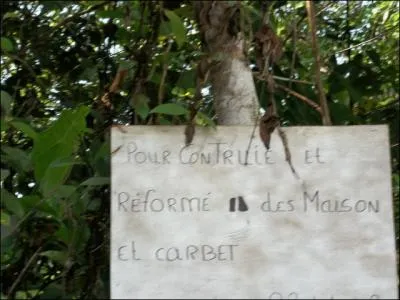 Pour ConTruie et
Réformé des Maison
et carbet